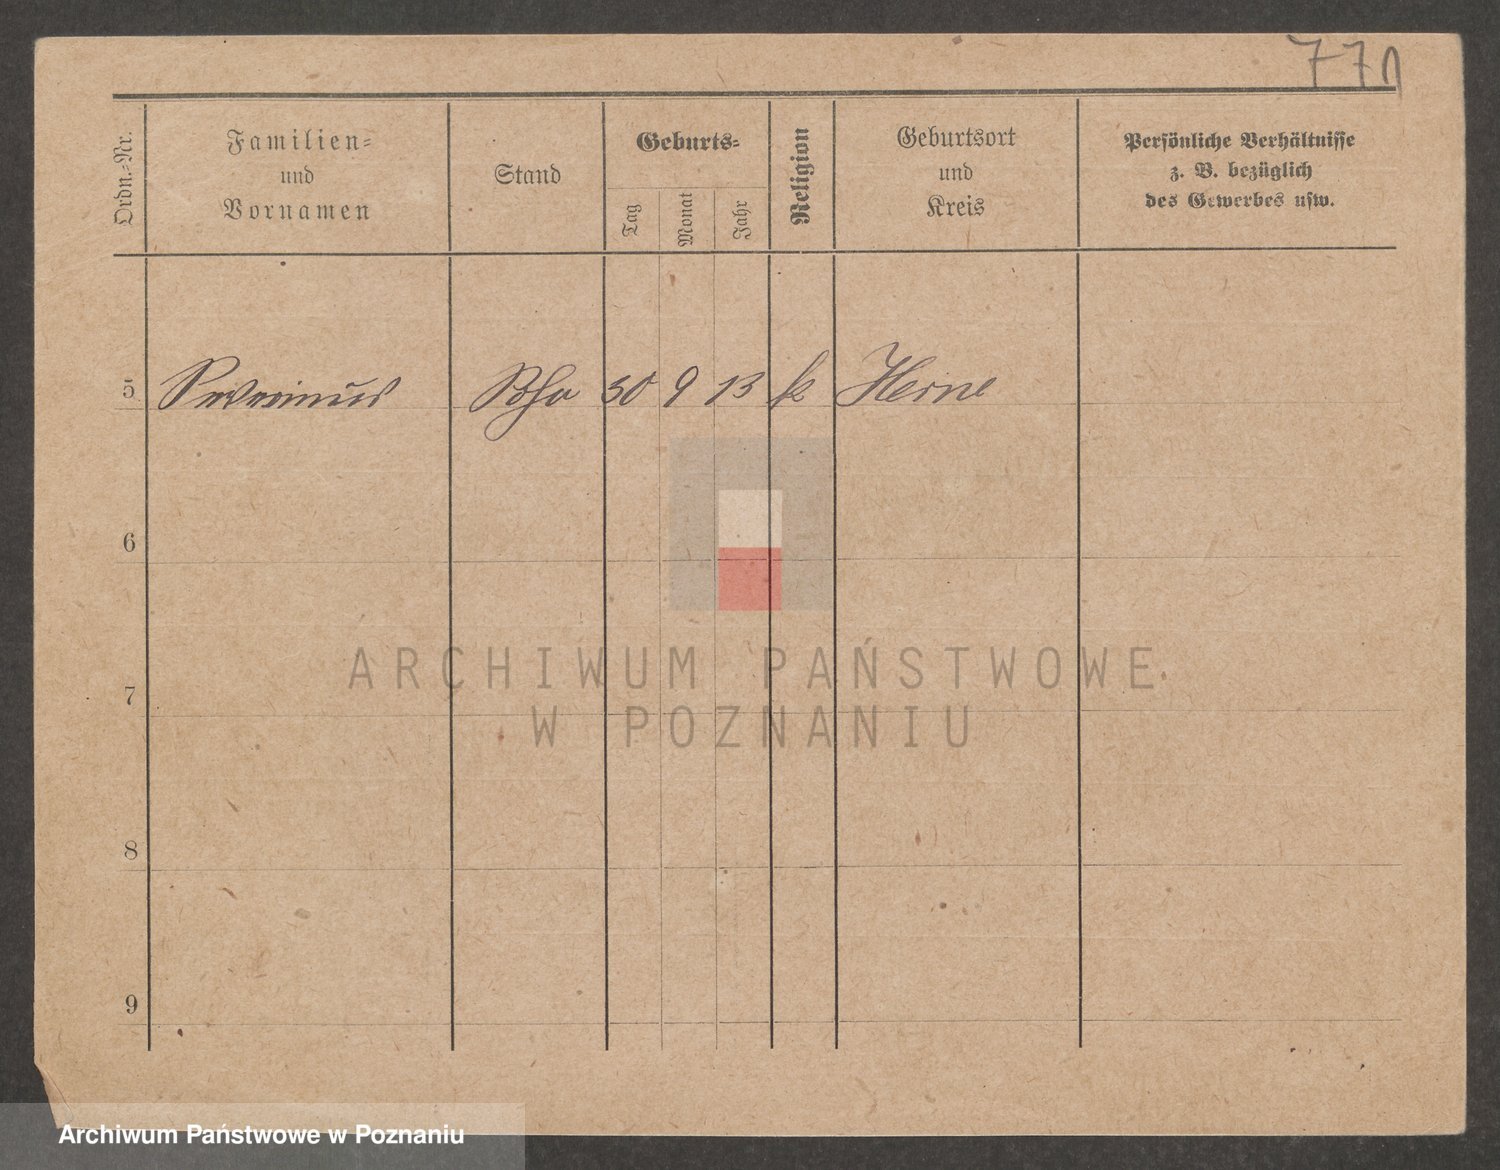 77n
Ordn.-Nr.
Familien-
und
Vornamen
Stand
Geburts-
Tag
Monat
Jahr
Religion
Geburtsort
und
Kreis
Persönliche Verhältnisse
z. B. bezüglich
des Gewerbes usw.
5 Severinus 30 9 13 k Herne
6
7
8
9
ARCHIWUM PAŃSTWOWE
W POZNANIU
Archiwum Państwowe w Poznaniu